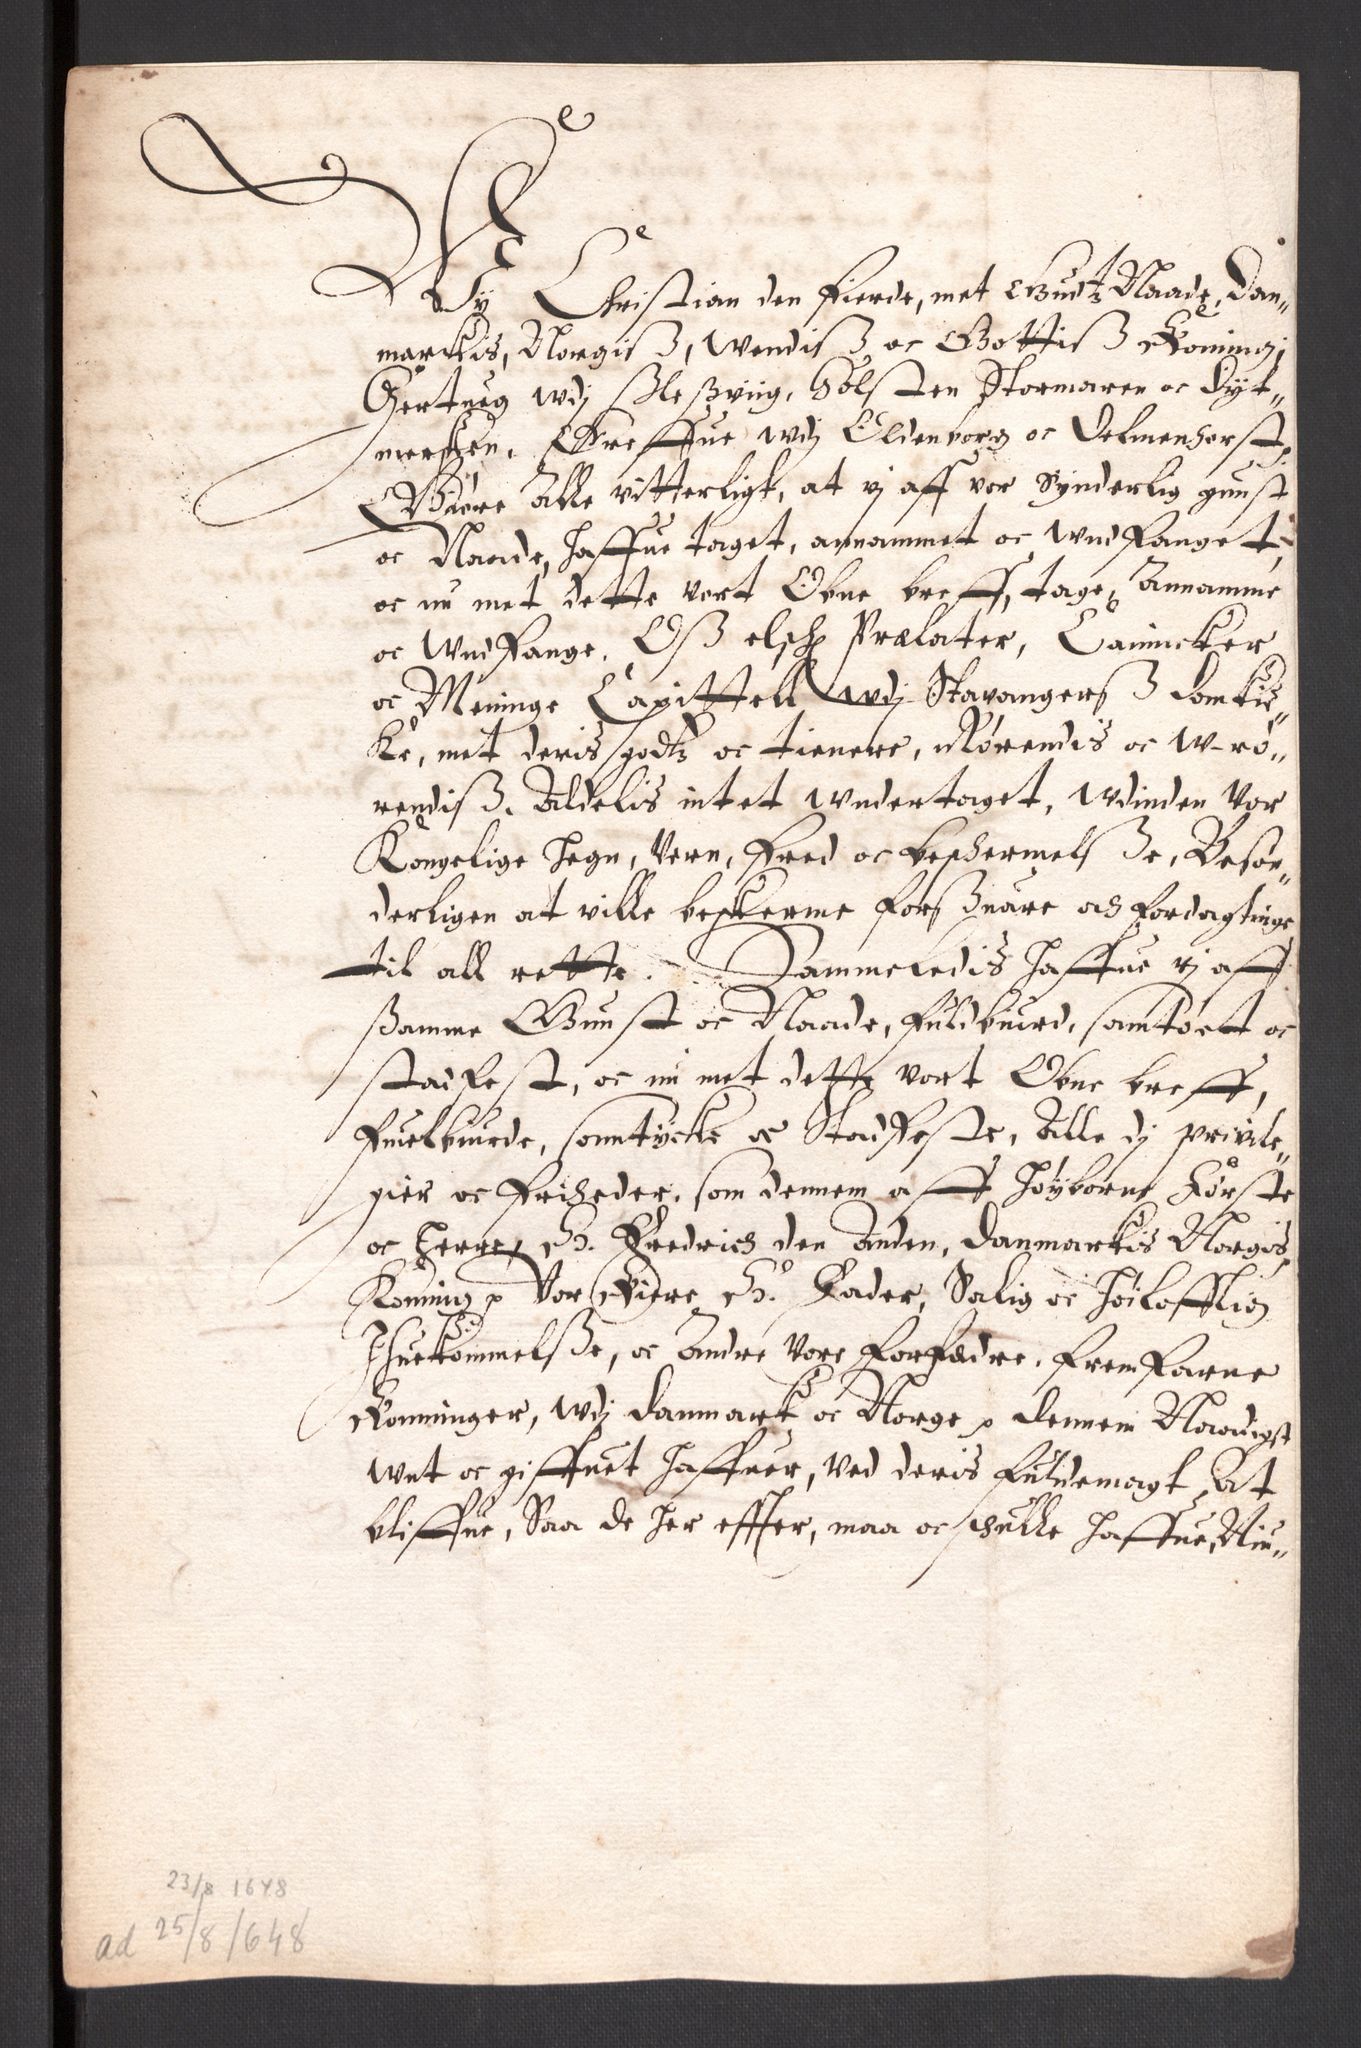 Wy Christian den fierde, met Gudtz Naade, Dan„
marckis, Norgis, Wendis oc Gottis Konning,
Hertueg wdj Slesuiig, Holsten Stormaren oc Dyt„
mersken, Greffue wdj Oldenborg oc Delmenhorst,
Giøre Alle vitterligt, at vj aff vor synderlig gunst
oc Naade, haffue taget, annammet oc wndfanget,
oc nu met dette vort Obne breff, tage, Annamme
oc wndfange, Oss elsch: Prælater, Cannicker
oc Meninge Capittell wdj Stavangers Domkir„
ke, met deris godtz oc tienere, rørendis oc w-rø„
rendiss, Aldelis intet wndertaget, wdinden Vor
Kongelige hegn, Vern, fred oc beschermelsse, Besøn„
derligen at ville beskerme forssuare och fordagtinge
til all rette. Sammeledis haffue vj aff
samme Gunst oc Naade, fuldburd, samtøct oc
stadfest, oc nu met dette vort Obne breff,
fuelburde, samtycke oc Stadfeste, Alle dj privile„
gier oc friheder, som dennem aff høyborne Første
oc Herre, H. Fredrich den Anden, Danmarkis Norgis
Koning p Vor Kiere H. Fader, Salig oc høilofflig
Ihuekommelsse, oc Andre Vore forfædre, fremfarne
Konninger, wdj Danmark oc Norge p dennem Naadigst
wnt oc giffuet haffuer, Ved deris fuldemagt At
bliffue, Saa de her effter, maa oc schulle haffue, Niu„
23/8 1648
ad 25/8 1648